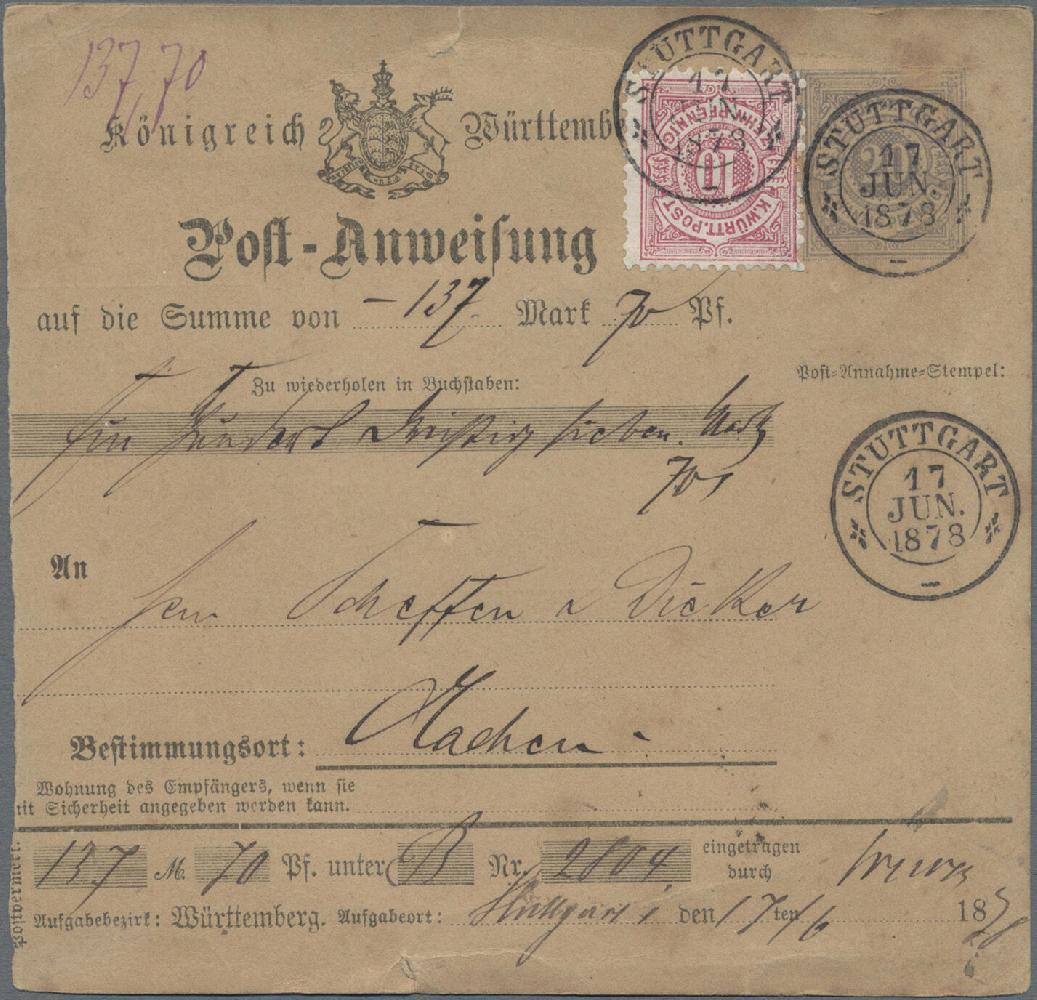 137,70
Königreich Württemb
Post-Anweisung
STUTTGART
17
JUN.
1878
1
10
K.WÜRTT.POST
STUTTGART
17
JUN.
1878
auf die Summe von – 137. Mark 70 Pf.
Zu wiederholen in Buchstaben:
Post-Annahme-Stempel:
Ein Hundert Dreißig sieben. Mark
70
STUTTGART
17
JUN.
1878
An
Herrn Scheffen & Dicker
Aachen
Bestimmungsort:
Wohnung des Empfängers, wenn sie
mit Sicherheit angegeben werden kann.
Postvermerk.
137 M. 70 Pf. unter B Nr. 2804 eingetragen durch
Aufgabebezirk: Württemberg. Aufgabeort: Stuttgart 1 den 17ten /6 1878